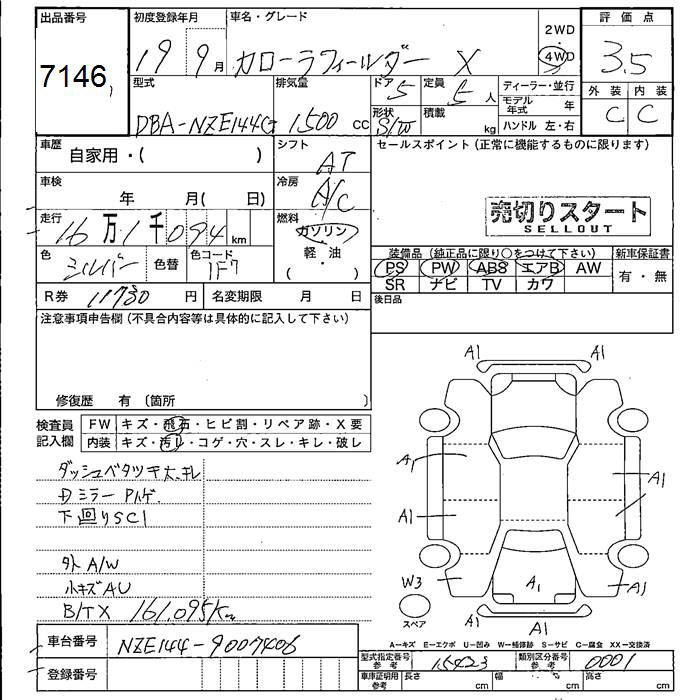 出品番号 初度登録年月 車名・グレード 2WD 評価点
7146 19 9月 カローラフィールダー X 4WD 3.5
型式 排気量 ドア 5 定員 5人 ディーラー・並行 外装 内装
DBA-NZE144G 1500 cc 形状 S/W 積載 kg モデル年式 年 C C
ハンドル 左・右
車歴 自家用・( ) シフト AT セールスポイント (正常に機能するものに限ります)
車検 年 月( 日) 冷房 A/C
売切りスタート
SELLOUT
走行 16万1千094km 燃料 ガソリン・軽・油 ( )
色 シルバー 色替 色コード 1F7
装備品 (純正品に限り○をつけて下さい) 新車保証書
PS PW ABS エアB AW 有・無
SR ナビ TV カワ
R券 11730円 名変期限 月 日 後日品
注意事項申告欄 (不具合内容等は具体的に記入して下さい)
修復歴 有 (箇所 )
検査員 FW キズ・飛石・ヒビ割・リペア跡・X要
記入欄 内装 キズ・汚レ・コゲ・穴・スレ・キレ・破レ
A1 A1
A1 A1
A1
W3 A1 A1
スペア
A1 A1
ダッシュベタツキ大、キレ
Dミラー Pハゲ
下回りSC1
外 A/W
小キズAU
B/TX 161,095Km
A-キズ E-エクボ U-凹み W-補修跡 S-サビ C-腐食 XX-交換済
車台番号 NZE144-9007406
登録番号
型式指定番号 参考 15423 類別区分番号 参考 0001
車庫証明用 参考 長さ cm 幅 cm 高さ cm